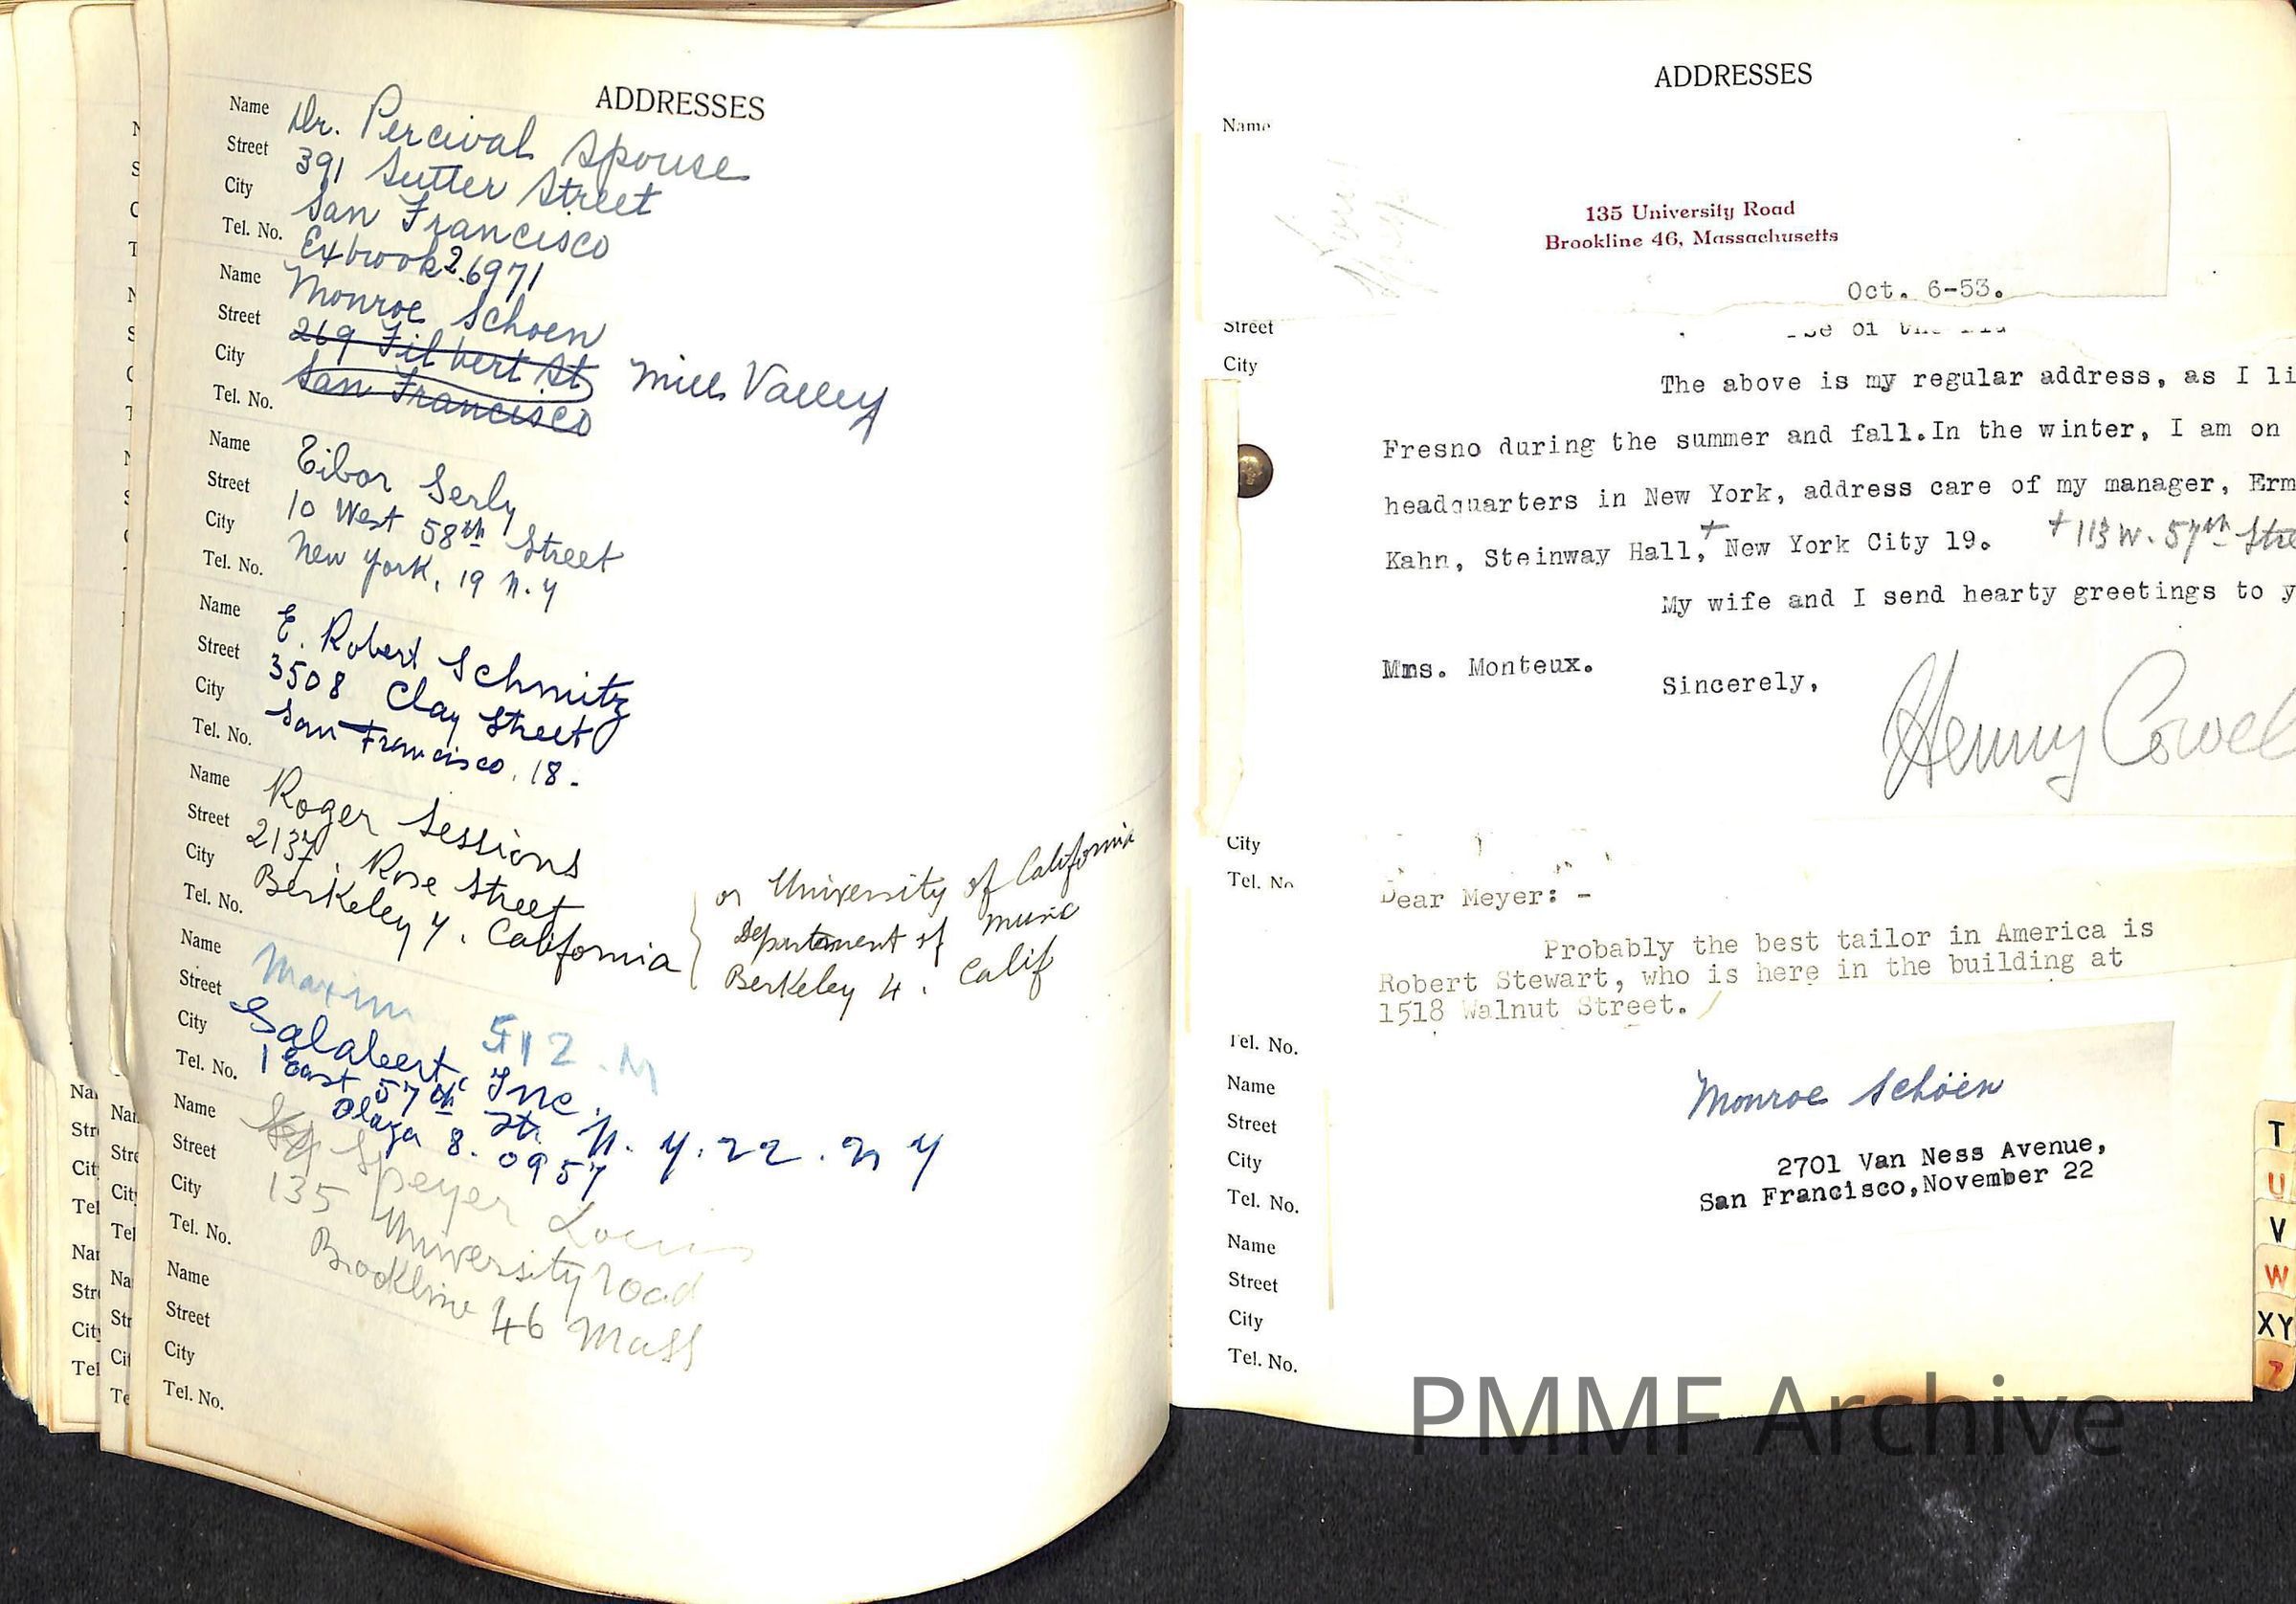 ADDRESSES
Name Dr. Percival Spouse
Street 391 Sutter Street
City San Francisco
Tel. No. Exbrook 2.6971
Name Monroe Schoen
Street 269 Filbert St
City San Francisco Mill Valley
Tel. No.
Name Tibor Serly
Street 10 West 58th Street
City New York, 19 N.Y
Tel. No.
Name E. Robert Schmitz
Street 3508 Clay Street
City San Francisco, 18.
Tel. No.
Name Roger Sessions
Street Rose Street
City Berkeley 4. California
Tel. No.
or University of California
Department of Music
Berkeley 4. Calif
Name Maxim 512.M
Street Galabert, Inc.
City 1 East 57th St. N.Y.22.N Y
Tel. No. Plaza 8.0957
Name Speyer Louis
Street 135 University road
City Brookline 46 Mass
Tel. No.
Name
Street
City
Tel. No.
ADDRESSES
Name
135 University Road
Brookline 46, Massachusetts
Oct. 6-53.
Street
City
The above is my regular address, as I li
Fresno during the summer and fall.In the winter, I am on
headquarters in New York, address care of my manager, Erm
Kahn, Steinway Hall,+ New York City 19. + 113 W. 57th Stre
My wife and I send hearty greetings to y
Mms. Monteux.
Sincerely,
Henry Cowel
City
Tel. No
Dear Meyer: -
Probably the best tailor in America is
Robert Stewart, who is here in the building at
1518 Walnut Street.
Tel. No.
Name
Street
City
Tel. No.
Name
Street
City
Tel. No.
Monroe Schöen
2701 Van Ness Avenue,
San Francisco,November 22
T
U
V
W
XY
Z
PMMF Archive